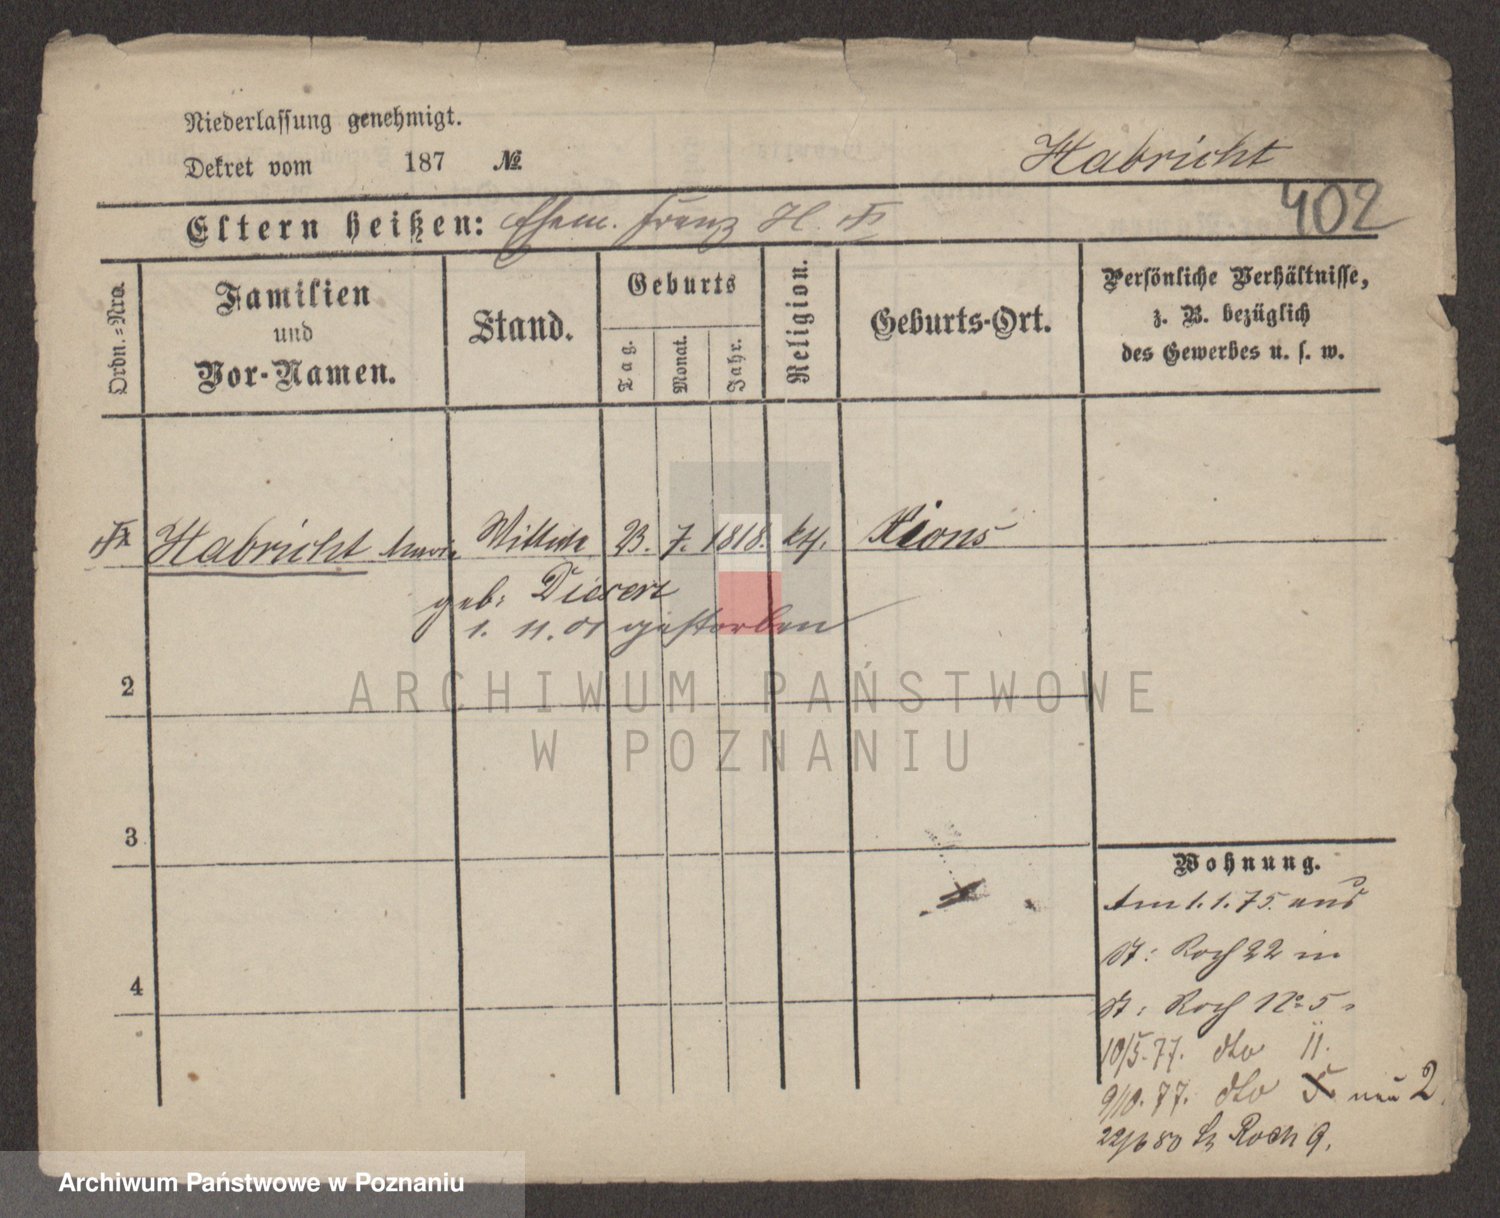 Niederlassung genehmigt.
Dekret vom 187 №
Habricht
402
Eltern heißen: Ehem. Franz H.
Ordn.-Nro.
Familien
und
Vor-Namen.
Stand.
Geburts
Tag.
Monat.
Jahr.
Religion.
Geburts-Ort.
Persönliche Verhältnisse,
z. B. bezüglich
des Gewerbes u. s. w.
Habricht 23. 7. 1818. kth. Xions
geb:
1. 11. 01 gestorben
2
3
4
Wohnung.
Am 1. 1. 75. aus
St: Roch 22 in
St: Roch No 5
10/5. 77. dto 11.
9/10. 77. dto 5 neu 2
22/6 80 St Roch 9.
ARCHIWUM PAŃSTWOWE
W POZNANIU
Archiwum Państwowe w Poznaniu